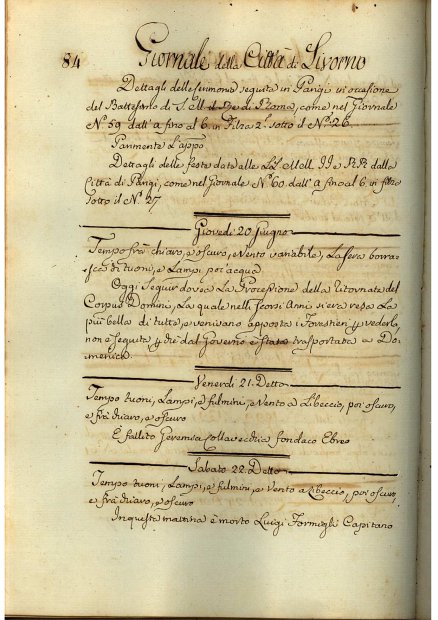 84 Giornale della Città di Livorno
Dettagli della cerimonia seguita in Parigi in ocasione
del Battesimo di S. M. il Re di Roma, come nel Giornale
N.º 59 dall' a fino al 6 in Filza 2.ª sotto il N.º 26
Parimente l'appo
Dettagli delle feste date alle LL. MM. II e RR dalla
Città di Parigi, come nel Giornale N.º 60. dall' a fino al 6 in filza
sotto il N.º 27
Giovedì 20 Giugno
Tempo frà chiaro, e oscuro, e Vento variabile, La Sera borra-
sca di tuoni, e Lampi, poi acqua
Oggi Seguir dovea La Processione della Ritornata del
Corpus Domini, La quale nelli scorsi Anni si era resa La
più bella di tutte, e venivano apposta i Forestieri p vederla,
non è seguita p che dal Governo è stata trasportata a Do-
menica
Venerdì 21. Detto
Tempo tuoni, Lampi, e fulmini, e Vento a Libeccio, poi oscuro,
e frà chiaro, e oscuro
È fallito Geremia Collavecchia fondaco Ebreo
Sabato 22. Detto
Tempo tuoni, Lampi, e fulmini, e Vento a Libeccio, poi oscuro,
e frà chiaro, e oscuro
In questa mattina è morto Luigi Formigli Capitano